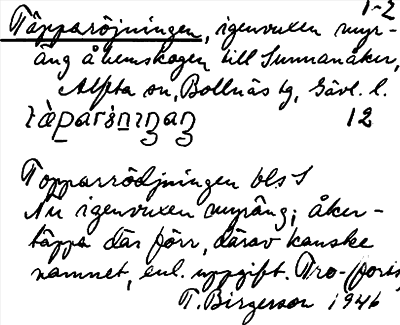 1-2
Täpparöjningen, igenvuxen myr-
äng å hemskogen till Sunnanåker,
Alfta sn, Bollnäs tg, Gävl. l.
12
Topparrödjningen bls S
Nu igenvuxen myräng; åker-
täppa där förr, därav kanske
namnet, enl. uppgift.
T. Birgerson 1946